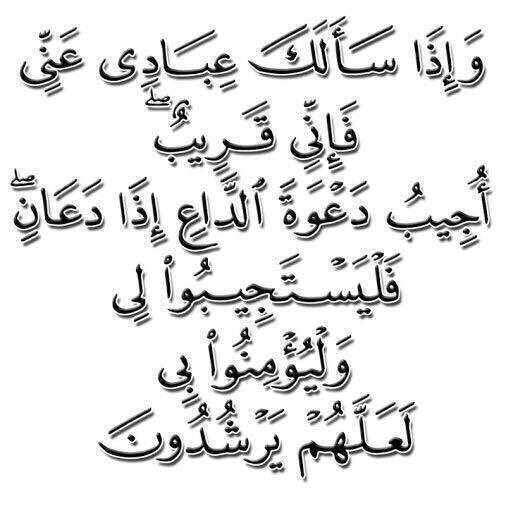 وَإِذَا سَأَلَكَ عِبَادِى عَنِّى
فَإِنِّى قَرِيبٌ ۖ
أُجِيبُ دَعْوَةَ ٱلدَّاعِ إِذَا دَعَانِ ۖ
فَلْيَسْتَجِيبُوا۟ لِى
وَلْيُؤْمِنُوا۟ بِى
لَعَلَّهُمْ يَرْشُدُونَ